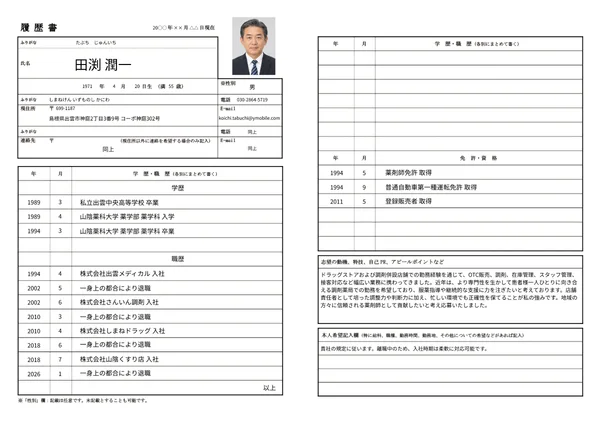 履歴書
20○○年××月△△日現在
ふりがな たぶち じゅんいち
氏名
田渕 潤一
1971 年 4 月 20 日生 (満 55 歳)
※性別
男
ふりがな しまねけん いずものしかにわ
電話 030-2664-5719
現住所 〒 099-1187
E-mail
島根県出雲市神庭2丁目3番9号 コーポ神庭302号
koichi.tabuchi@ymobile.com
ふりがな
電話 同上
連絡先 〒 (現住所以外に連絡を希望する場合のみ記入)
E-mail
同上
同上
年 月 学歴・職歴 (各別にまとめて書く)
学歴
1989 3 私立出雲中央高等学校 卒業
1989 4 山陰薬科大学 薬学部 薬学科 入学
1994 3 山陰薬科大学 薬学部 薬学科 卒業
職歴
1994 4 株式会社出雲メディカル 入社
2002 5 一身上の都合により退職
2002 6 株式会社さんいん調剤 入社
2010 3 一身上の都合により退職
2010 4 株式会社しまねドラッグ 入社
2018 6 一身上の都合により退職
2018 7 株式会社山陰くすり店 入社
2026 1 一身上の都合により退職
以上
※「性別」欄：記載は任意です。未記載とすることも可能です。
年 月 学歴・職歴 (各別にまとめて書く)
年 月 免許・資格
1994 5 薬剤師免許 取得
1994 9 普通自動車第一種運転免許 取得
2011 5 登録販売者 取得
志望の動機、特技、自己PR、アピールポイントなど
ドラッグストアおよび調剤併設店舗での勤務経験を通じて、OTC販売、調剤、在庫管理、スタッフ管理、
接客対応など幅広い業務に携わってきました。近年は、より専門性を生かして患者様一人ひとりに向き合
える調剤薬局での勤務を希望しており、服薬指導や継続的な支援に力を注ぎたいと考えております。店舗
責任者として培った調整力や判断力に加え、忙しい環境でも正確性を保てることが私の強みです。地域の
方々に信頼される薬剤師として貢献したいと考え応募いたしました。
本人希望記入欄 (特に給料、職種、勤務時間、勤務地、その他についての希望などがあれば記入)
貴社の規定に従います。離職中のため、入社時期は柔軟に対応可能です。